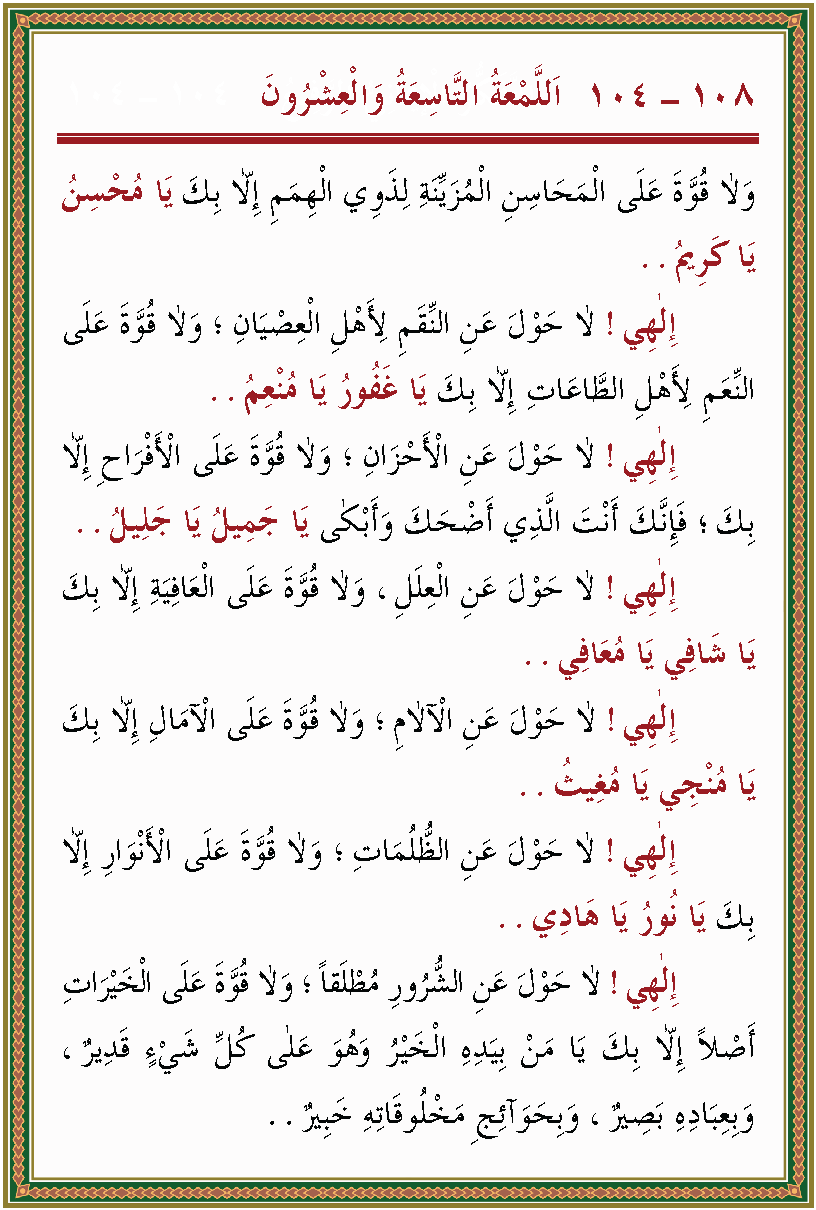 ١٠٨ – ١٠٤ اَللَّمْعَةُ التَّاسِعَةُ وَالْعِشْرُونَ
وَلاٰ قُوَّةَ عَلَى الْمَحَاسِنِ الْمُزَيِّنَةِ لِذَوِي الْهِمَمِ إِلّاٰ بِكَ يَا مُحْسِنُ
يَا كَرِيمُ . .
إِلٰهِي ! لاٰ حَوْلَ عَنِ النِّقَمِ لِأَهْلِ الْعِصْيَانِ ؛ وَلاٰ قُوَّةَ عَلَى
النِّعَمِ لِأَهْلِ الطَّاعَاتِ إِلّاٰ بِكَ يَا غَفُورُ يَا مُنْعِمُ . .
إِلٰهِي ! لاٰ حَوْلَ عَنِ الْأَحْزَانِ ؛ وَلاٰ قُوَّةَ عَلَى الْأَفْرَاحِ إِلّاٰ
بِكَ ؛ فَإِنَّكَ أَنْتَ الَّذِي أَضْحَكَ وَأَبْكٰى يَا جَمِيلُ يَا جَلِيلُ . .
إِلٰهِي ! لاٰ حَوْلَ عَنِ الْعِلَلِ ، وَلاٰ قُوَّةَ عَلَى الْعَافِيَةِ إِلّاٰ بِكَ
يَا شَافِي يَا مُعَافِي . .
إِلٰهِي ! لاٰ حَوْلَ عَنِ الْآلاٰمِ ؛ وَلاٰ قُوَّةَ عَلَى الْآمَالِ إِلّاٰ بِكَ
يَا مُنْجِي يَا مُغِيثُ . .
إِلٰهِي ! لاٰ حَوْلَ عَنِ الظُّلُمَاتِ ؛ وَلاٰ قُوَّةَ عَلَى الْأَنْوَارِ إِلّاٰ
بِكَ يَا نُورُ يَا هَادِي . .
إِلٰهِي ! لاٰ حَوْلَ عَنِ الشُّرُورِ مُطْلَقاً ؛ وَلاٰ قُوَّةَ عَلَى الْخَيْرَاتِ
أَصْلاً إِلّاٰ بِكَ يَا مَنْ بِيَدِهِ الْخَيْرُ وَهُوَ عَلٰى كُلِّ شَيْءٍ قَدِيرٌ ،
وَبِعِبَادِهِ بَصِيرٌ ، وَبِحَوَآئِجِ مَخْلُوقَاتِهِ خَبِيرٌ . .